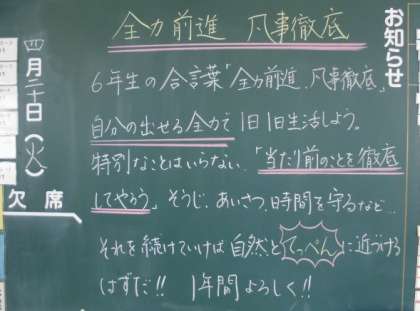 お知らせ
全力前進 凡事徹底
6年生の合言葉「全力前進、凡事徹底」
自分の出せる全力で1日1日生活しよう。
特別なことはいらない、「当たり前のことを徹底
してやろう」そうじ、あいさつ、時間を守るなど…
それを続けていけば自然とてっぺんに近づける
はずだ!! 1年間よろしく!!
四月二十日(火)
欠席